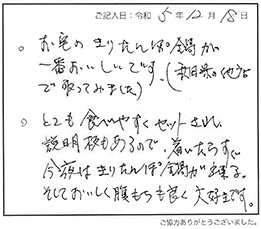 ご記入日:令和 5年 12月 18日
○ お宅のきりたんぽ鍋が
一番おいしいです。(秋田県の他店
で取ってみました)
○ とても食べやすくセットされ、
説明板もあるので、着いたらすぐ
今夜はきりたんぽ鍋が出来る。
そしておいしく腹もちも良く大好きです。
ご協力ありがとうございました。